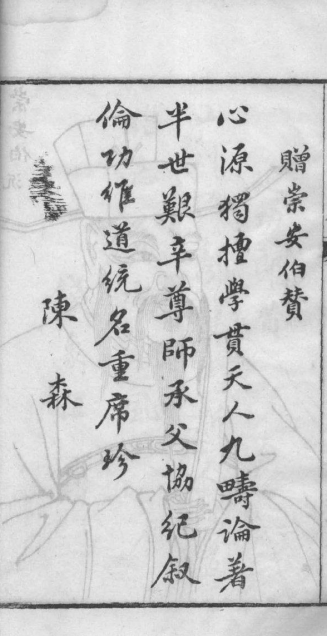 贈崇安伯贊
心源獨擅學貫天人九疇論著
半世艱辛尊師承父協紀叙
倫功維道統名重席珍
陳森